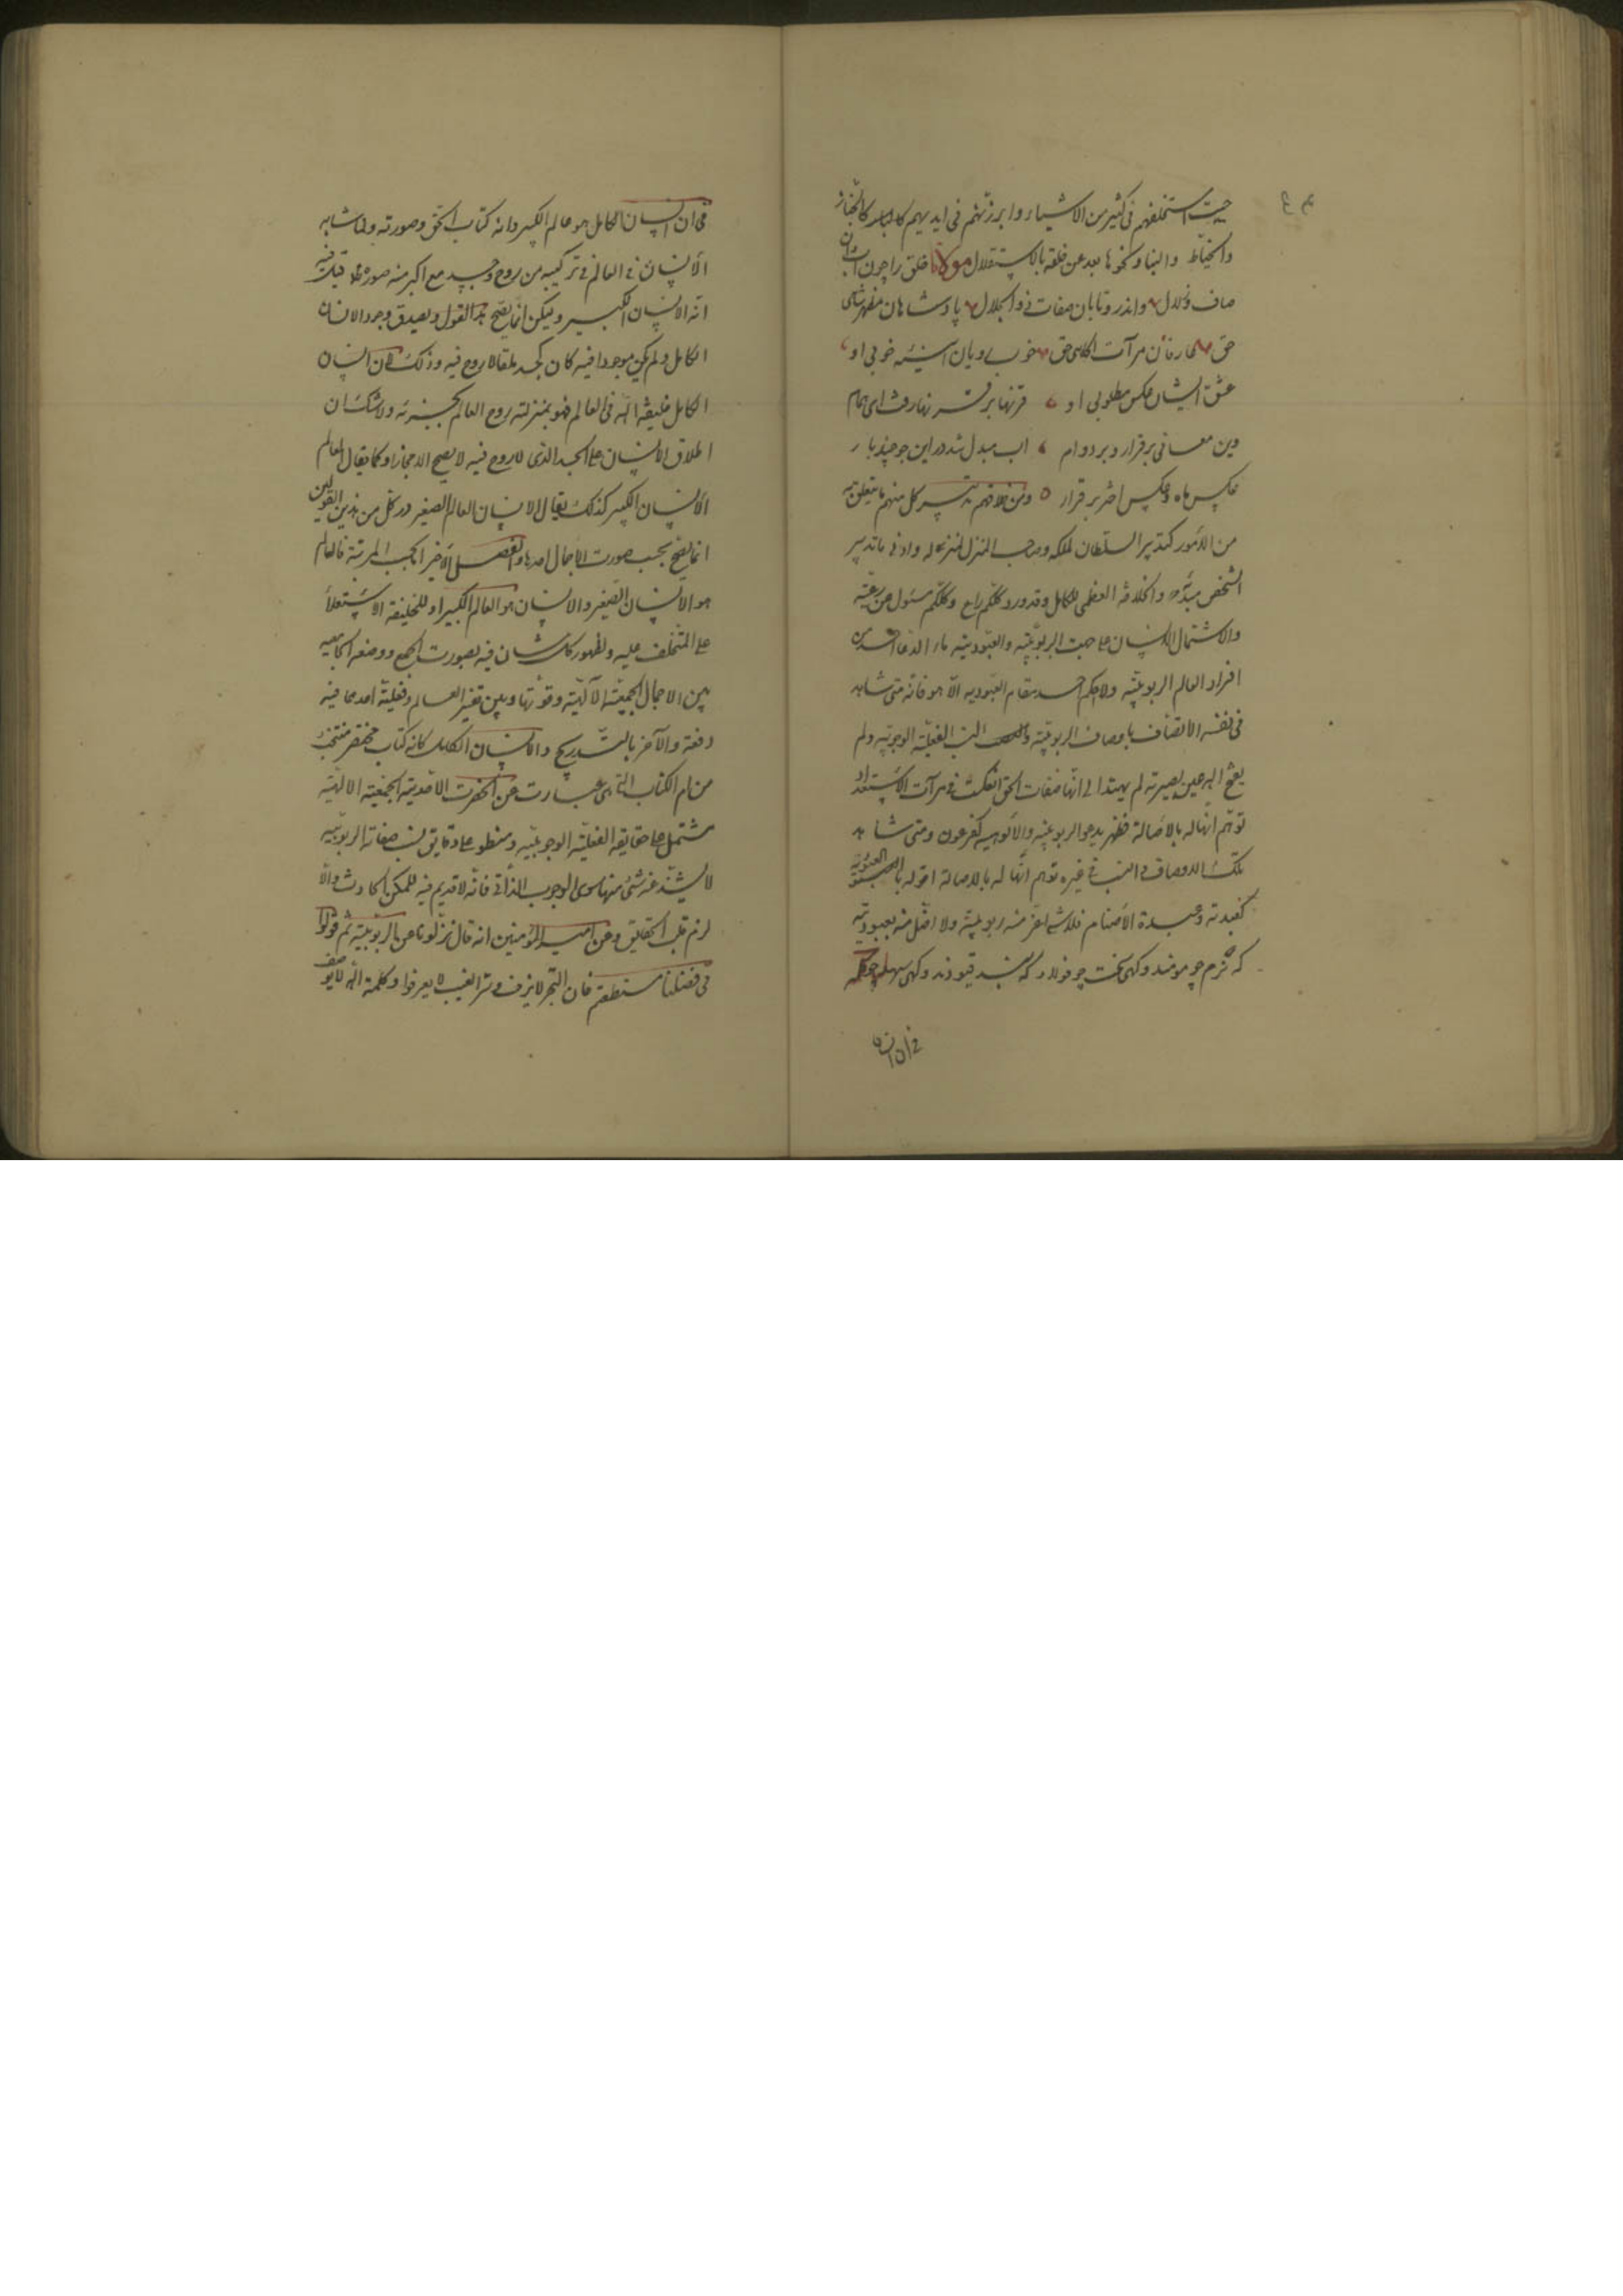 حيث استخلفهم فی كثير من الاشياء وابرزتهم فی ايديهم كالنجار
والخياط والبنا ونحوها بعد عن خلقه بالاستقلال مولانا خلق را چون آب دان
صاف وزلال واندر و تابان صفات ذو الجلال پادشاهان مظهر شاهی
حق عارفان مرآت آکاهی حق خوب رویان آینهٔ خوبی او
عشق ایشان عکس مطلوبی او قرنها بر قرنها رفت ای همام
وین معانی برقرار و بر دوام اب مبدل شد در این جو چند بار
عکس ماه و عکس اختر برقرار ومن خلافتهم تدبير كل منهم ما يتعلق به
من الامور كتدبير السلطان لملكه وصاحب المنزل لمنزله وادنی ما تدبير
الشخص بدنه والخلافة العظمی للكامل وقد ورد كلكم راع وكلكم مسئول عن رعيته
والاشتمال الانسان علی جهت الربوبية والعبودية ما ادعا احد من
افراد العالم الربوبية ولا احكم احد مقام العبودية الا هو فانه متی شاهد
فی نفسه الاتصاف باوصاف الربوبية والنسب الفعلية الوجوبية ولم
يفتح الله عين بصيرته لم يهتد الی انها صفات الحق انعكست فی مرآت الاستعداد
توهم انها له بالاصالة فظهر يدعو الربوبية والالوهية كفرعون ومتی شاهد
تلك الاوصاف والنسب فی غيره توهم انها له بالاصالة اقر له بالعبودية
كعبدته وعبدة الاصنام فلا شیء اعز منه ربوبية ولا اذل منه بعبوديته
كه نرم چو مومند و كهی سخت چو فولاد
فی ان الانسان الكامل هو عالم الكبير وانه كتاب الحق وصورته ولما شابه
الانسان فی العالم فی تركيبه من روح وجسد مع اكبر منه صورة قيل فيه
انه الانسان الكبير وليكن انما يصح هذا القول ويصدق بوجود الانسان
الكامل ولم يكن موجودا فيه كان كجسد ملقا لا روح فيه وذلك لان انسان
الكامل خليفة الله فی العالم فهو بمنزلته روح العالم كجسد له ولا شك ان
اطلاق الانسان علی الجسد الذی لا روح فيه لا يصح الا مجازا وكما يقال العالم
الانسان الكبير كذلك يقال الانسان العالم الصغير وكل من هذين القولين
انما يصح بحسب صورت الاجمال احدها والتفصيل الاخر اما بحسب المرتبة فالعالم
هو الانسان الصغير والانسان هو العالم الكبير اذ للخليفة الاستعلاء
علی المتخلف عليه ولظهور كل شان فيه بصورت الجمع ووصفه الجامعية
بين الاجمال الجمعية الالهية وقوتها وبين تفصيل العالم وفعليته احدهما فيه
دفعة والاخر بالتدريج والانسان الكامل كانه كتاب مختصر منتخب
من ام الكتاب التی هی عبارت عن الحضرت الاحدية الجمعية الالهية
مشتمل علی حقايقه الفعلية الوجوبية ومنطو علی دقايق نسب صفاته الربوبية
لا يشذ عنه شیء منها سوی الوجوب الذاتی فانه لا قدم فيه للممكن الحادث والا
لزم قلب الحقايق وعن امير المؤمنين انه قال نزلونا عن الربوبية ثم قولوا
فی فضلنا ما استطعتم فان البحر لا ينزف وسر الغيب لا يعرف وكلمة الله لا يوصف